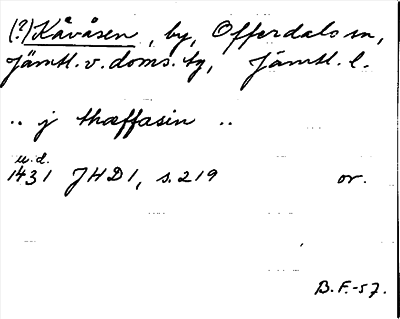 (?)Kåvåsen, by, Offerdals sn,
Jämtl. v. doms. tg, Jämtl. l.
.. j thæffasin ..
u.d.
1431 JHD1, s. 219 or.
B.F.-57.